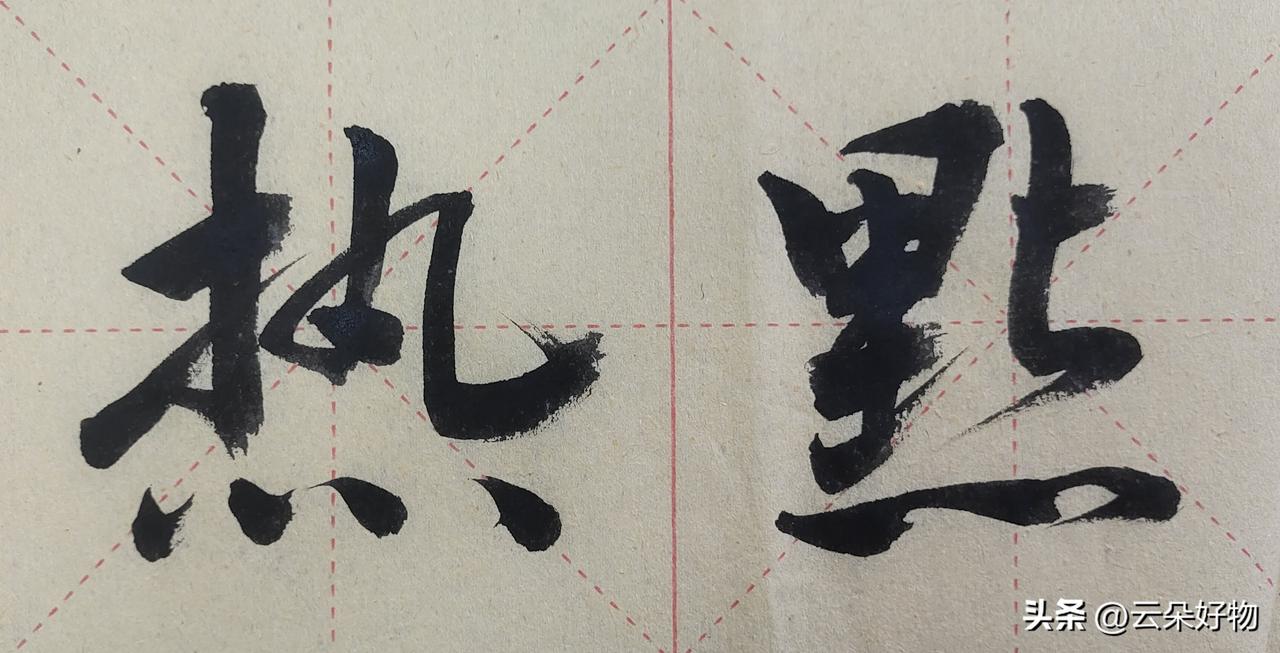 热點
头条 @云朵好物